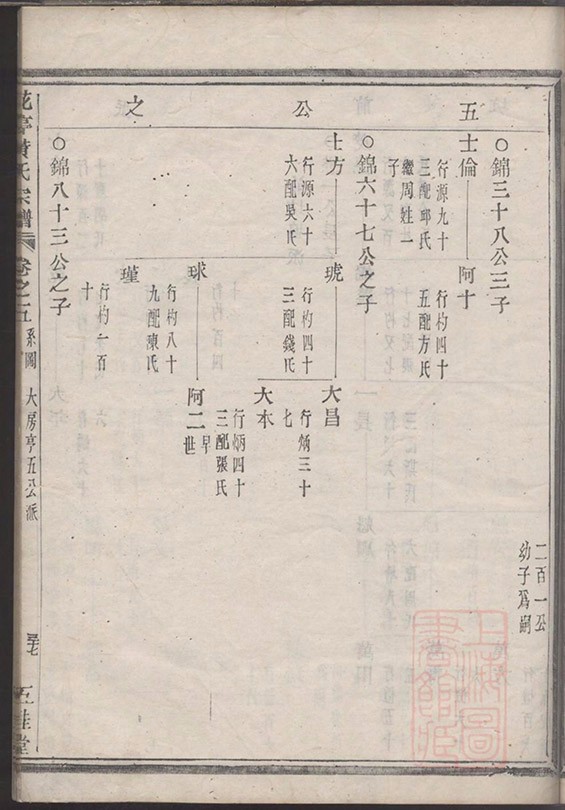 五公之
二百一公
幼子為嗣
○錦三十八公三子
士倫
行源九十
三配鄒氏
繼周姓一
子
阿十
行杓四十
五配方氏
○錦六十七公之子
士方
行源六十
六配吳氏
琥
行杓四十
三配錢氏
大昌
行炳三十
七
大本
球
行杓八十
九配陳氏
阿二
行炳四十
三配張氏
早
世
瑾
行杓一百
十
○錦八十三公之子
花亭黃氏宗譜
卷之五
系圖
大房亨五公派
五桂堂
上海圖
書館藏